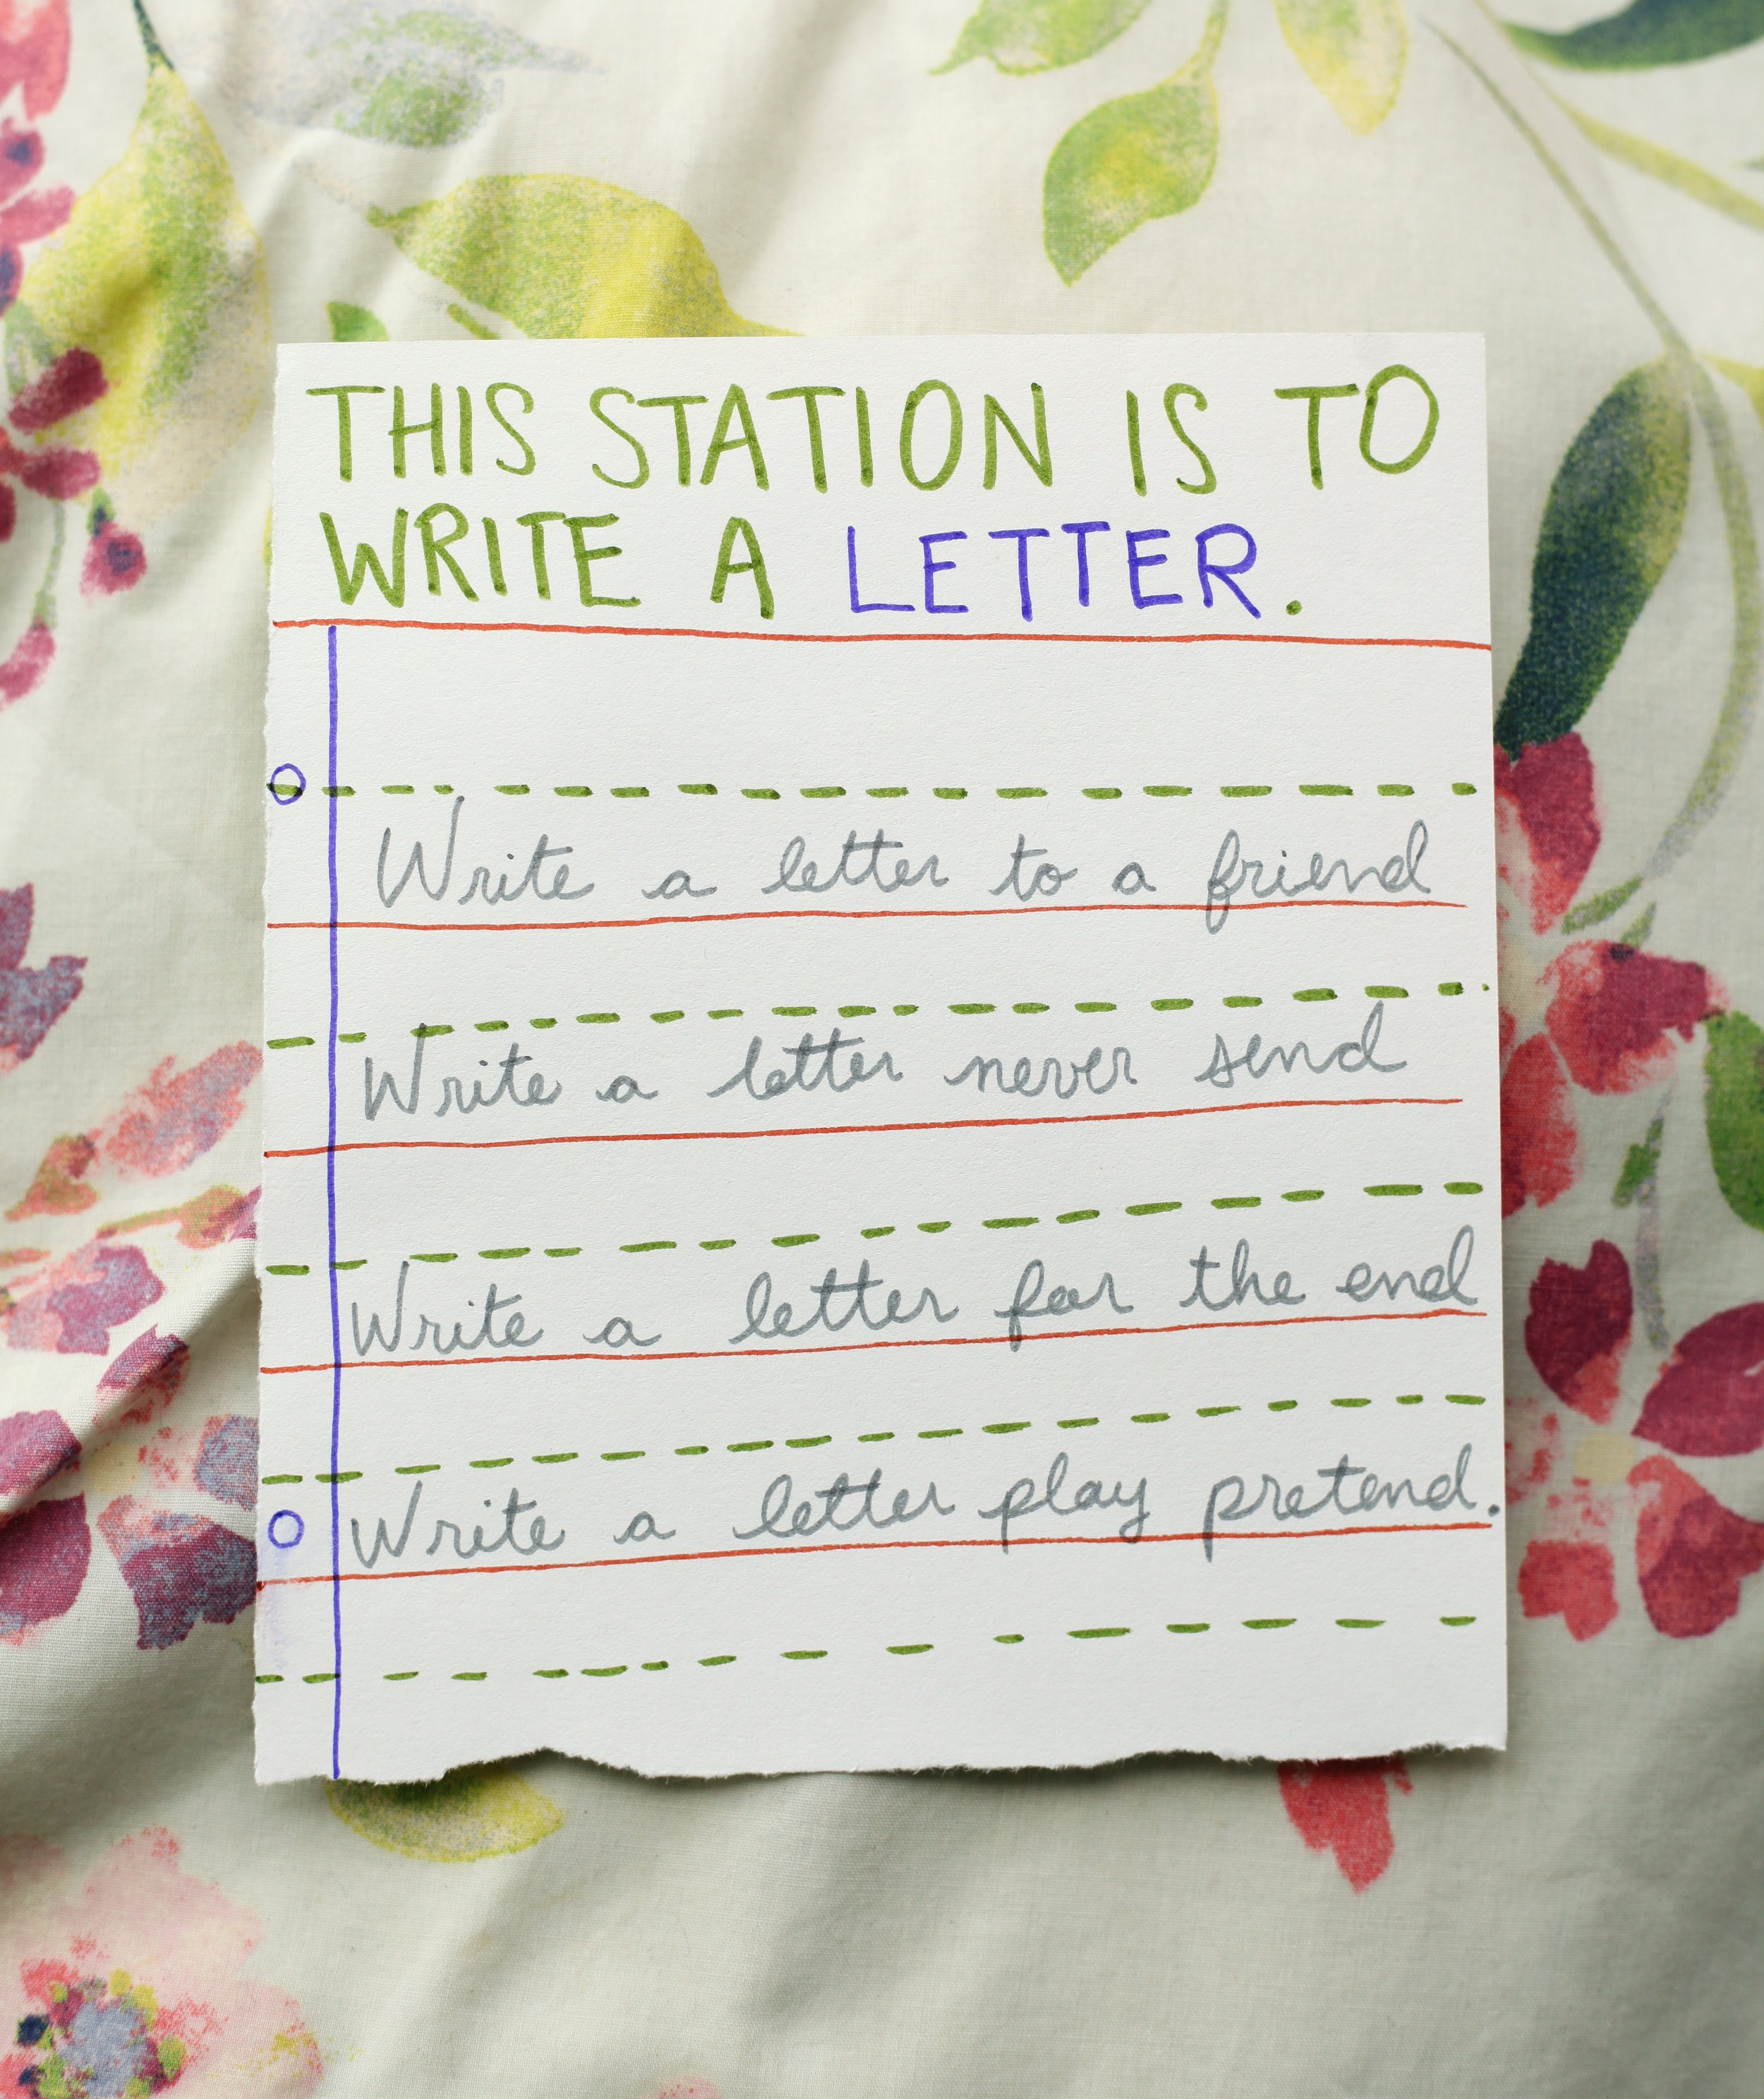 THIS STATION IS TO
WRITE A LETTER.
Write a letter to a friend
Write a letter never send
Write a letter for the end
Write a letter play pretend.